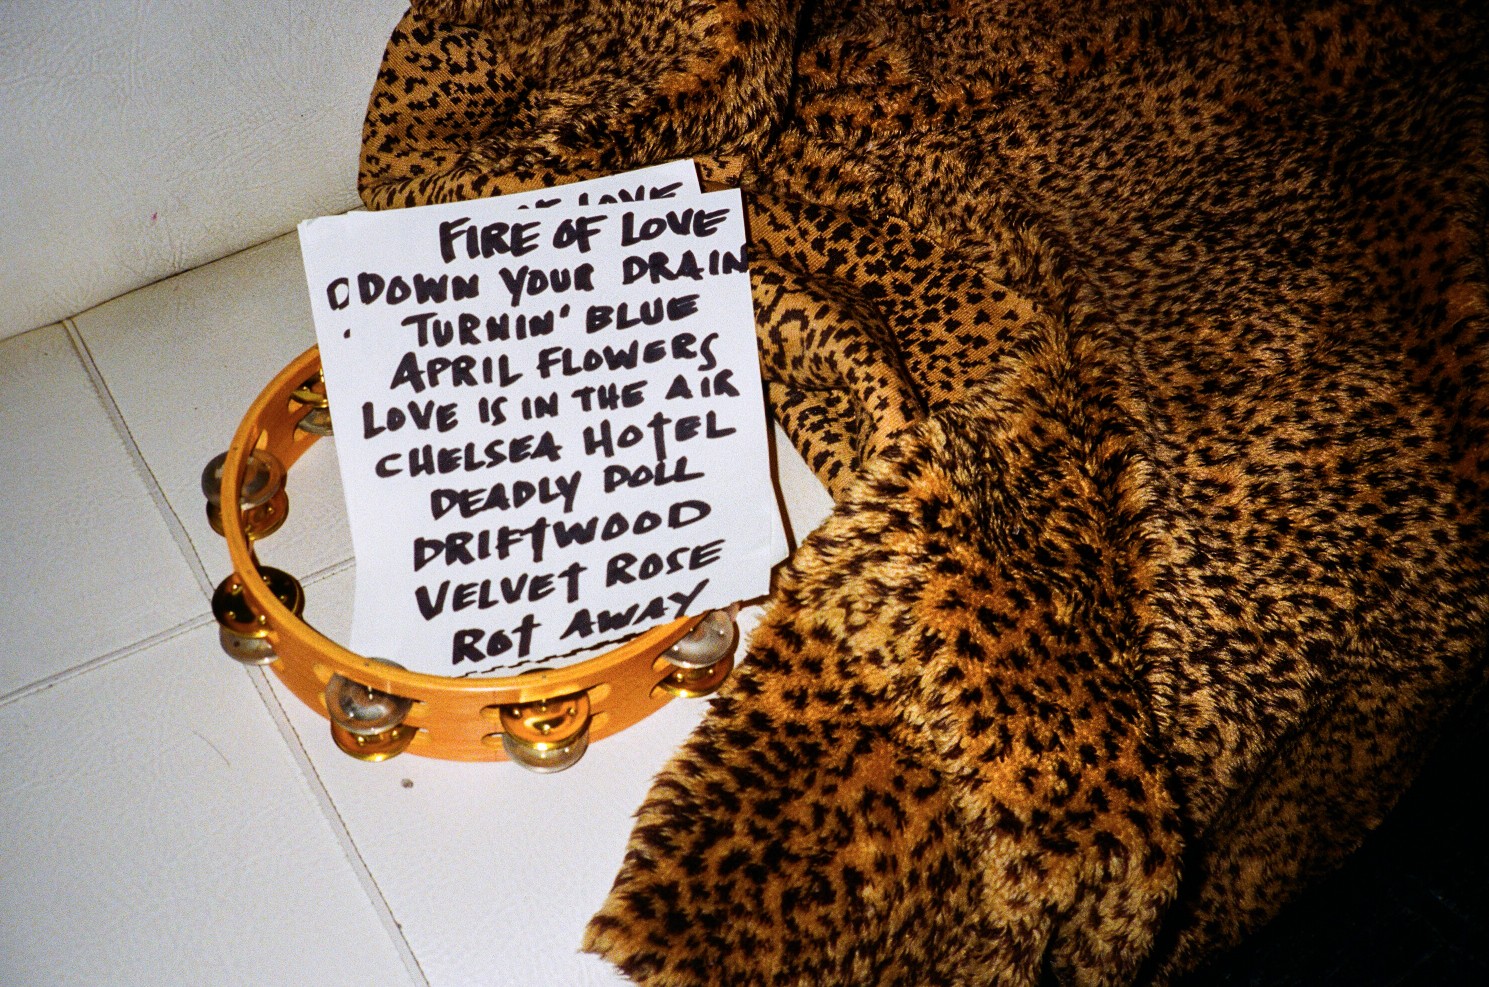 OF LOVE
FIRE OF LOVE
DOWN YOUR DRAIN
TURNIN' BLUE
APRIL FLOWERS
LOVE IS IN THE AIR
CHELSEA HOTEL
DEADLY DOLL
DRIFTWOOD
VELVET ROSE
ROT AWAY